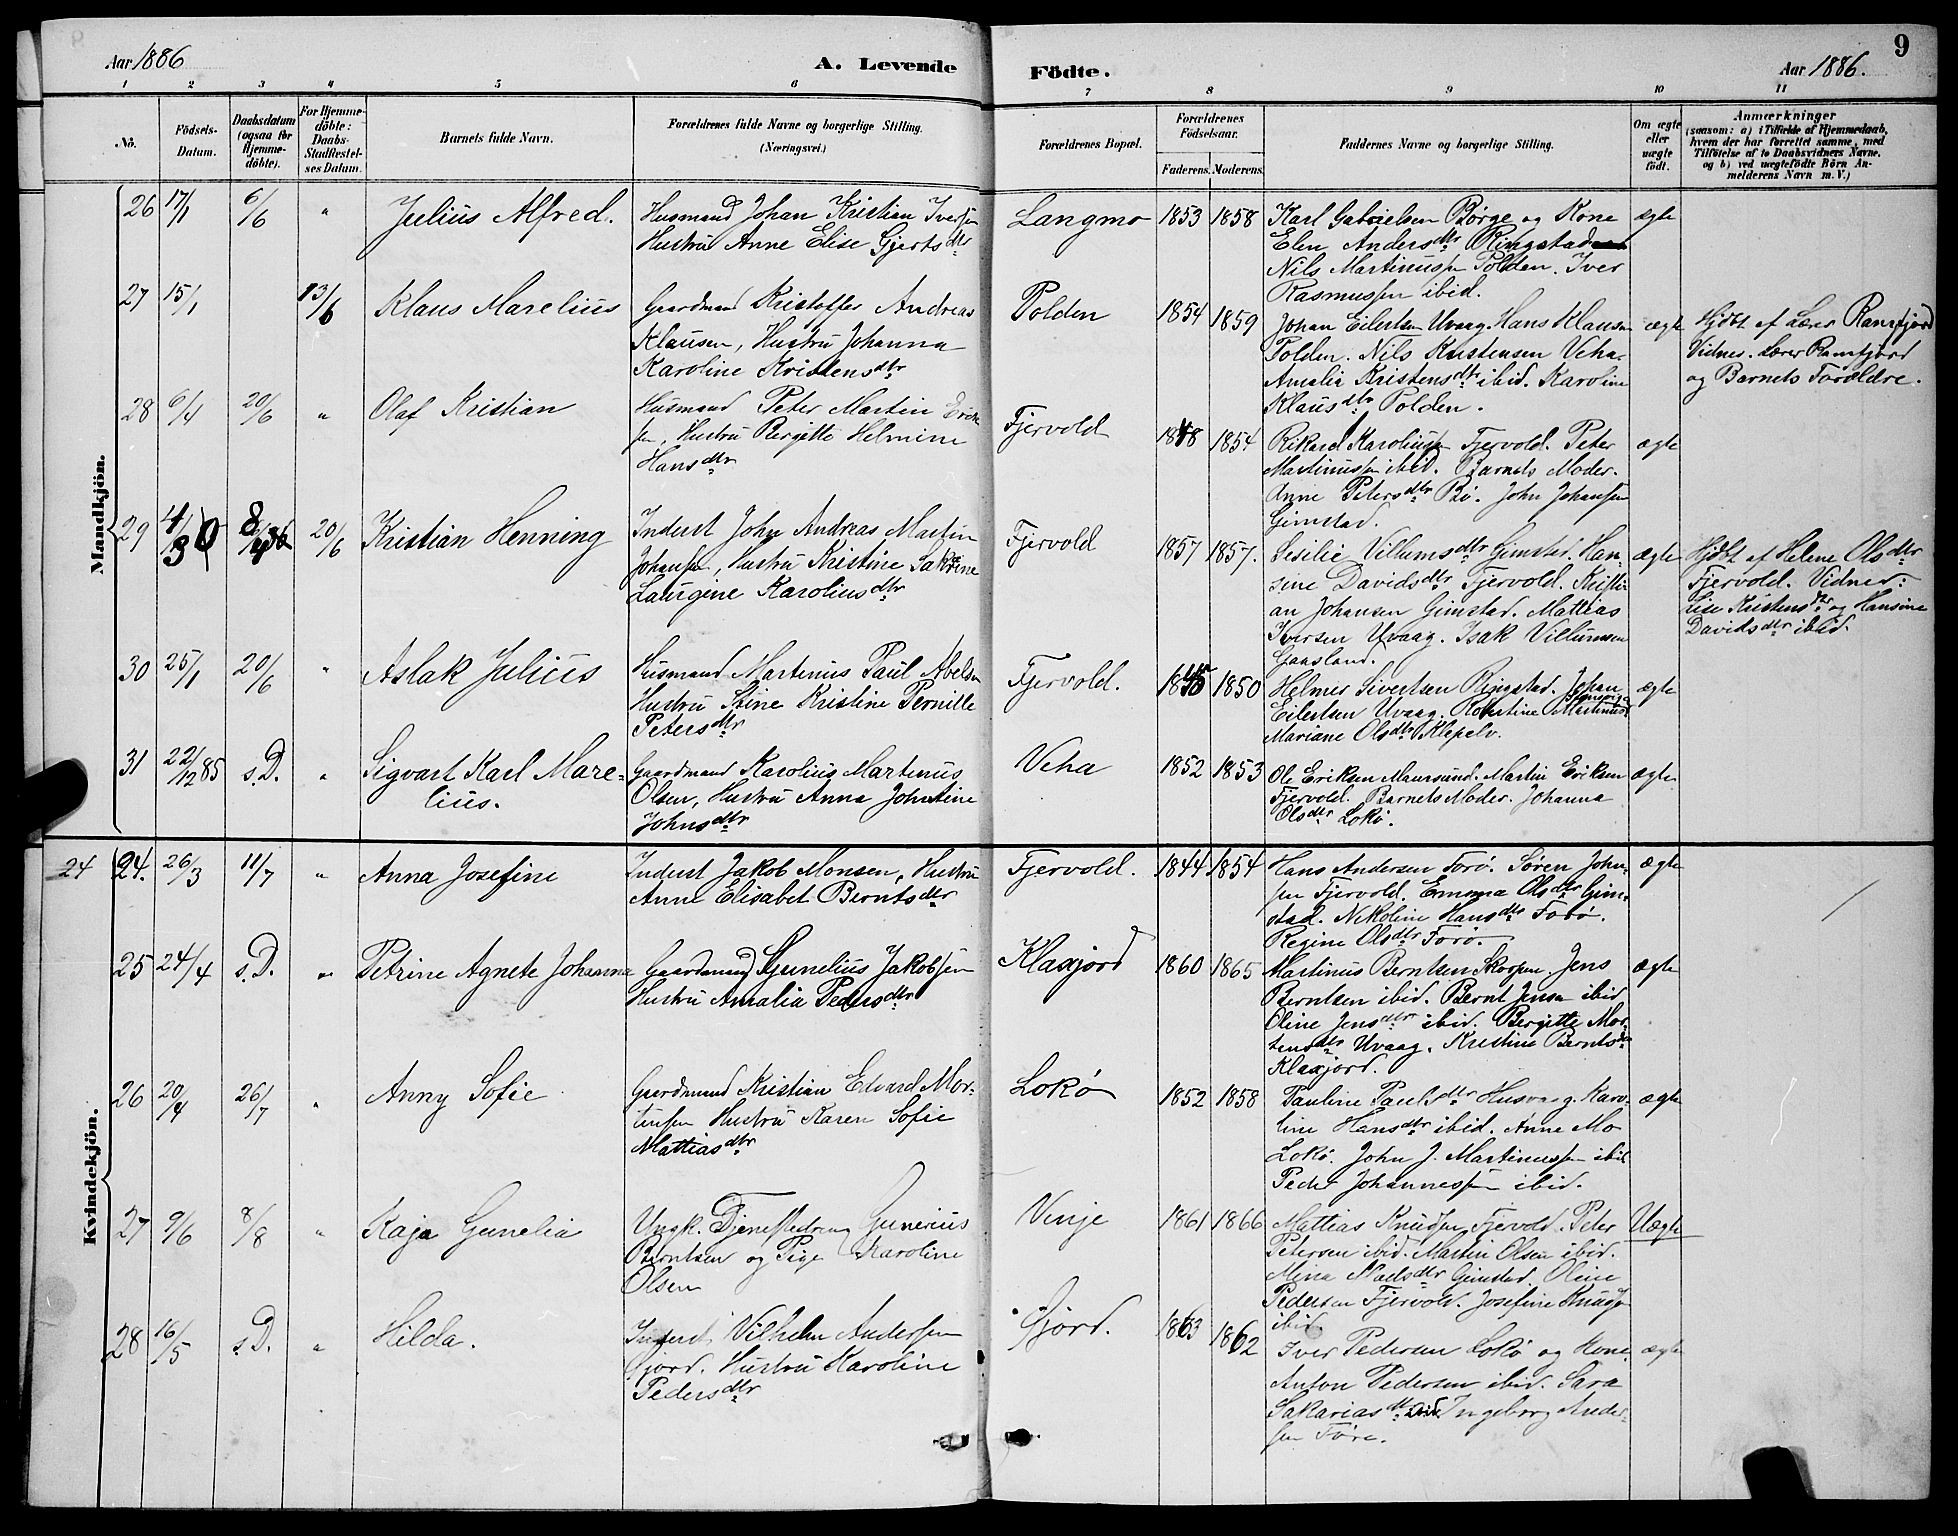 Aar 1886
A. Levende
Födte.
Aar 1886.
9
1 2 3 4 5 6 7 8 9 10 11
No.
Födsels-
Datum.
Daabsdatum
(ogsaa for
Hjemme-
döbte).
For Hjemme-
döbte:
Daabs-
Stadfæstel-
ses Datum.
Barnets fulde Navn.
Forældrenes fulde Navne og borgerlige Stilling.
(Næringsvei.)
Forældrenes Bopæl.
Forældrenes
Födselsaar.
Faderens. Moderens.
Faddernes Navne og borgerlige Stilling.
Om ægte
eller
uægte
födt.
Anmærkninger
(saasom: a) i Tilfælde af Hjemmedaab,
hvem der har forrettet samme, med
Tilföielse af to Daabsvidners Navne,
og b) ved uægtefödte Börn An-
melderens Navn m. V.)
Mandkjön.
26 17/1 6/6 " Julius Alfred.
Husmand Johan Kristian Iversen
Hustru Anne Elise Gjertsdtr
Langmo 1853 1858
Karl Gabrielsen Børge og Kone
Elen Andersdtr Ringstad
Nils Martinussen Polden. Iver
Rasmussen ibid.
ægte
27 15/1 13/6 Klaus Marelius
Gaardmand Kristoffer Andreas
Klausen, Hustru Johanna
Karoline Kristensdtr
Polden 1854 1859
Johan Eilertsen Uvaag. Hans Klausen
Polden. Nils Kristensen Veha.
Amalia Kristensdtr ibid. Karoline
Klausdtr Polden.
ægte
Hjdbt af Lærer Ramfjord
Vidnes. Lærer Ramfjord
og Barnets Forældre.
28 6/4 20/6 " Olaf Kristian
Husmand Peter Martin Erik
sen, Hustru Bergitte Helmine
Hansdtr
Fjervold 1848 1854
Rikard Karoliussen Fjervold. Peter
Martinussen ibid. Barnets Moder.
Anne Petersdtr Bö. John Johansen
Gimstad.
ægte
29 4/3 8/4 86 20/6 Kristian Henning
Inderst John Andreas Martin
Johansen, Hustru Kristine Sakrine
Laurgine Karoliusdtr
Fjervold 1857 1857.
Sisilie Villumsdtr Gimstad. Han-
sine Davidsdtr Fjervold. Kristi-
an Johansen Gimstad. Mattias
Iversen Uvaag. Isak Villumsen
Gaasland.
ægte
Hjdbt af Helene Olsdtr
Fjervold. Vidner:
Lise Kristensdtr og Hansine
Davidsdtr ibid.
30 25/1 20/6 " Aslak Julius
Husmand Martinus Paul Abelsen
Hustru Stine Kristine Pernille
Petersdtr
Fjervold. 1845 1850
Helmer Sivertsen Ringstad. Johan
Eilertsen Uvaag. Robertine Martinusd
Mariane Olsdtr Klepelv.
ægte
31 22/12 85 s.D. " Sigvart Karl Mare-
lius.
Gaardmand Karolius Martinus
Olsen, Hustru Anna Johntine
Johnsdtr
Veha 1852 1853
Ole Eriksen Maursund. Martin Eriksen
Fjervold. Barnets Moder. Johanna
Olsdtr Lokö.
ægte
Kvindekjön.
24 24. 26/3 11/7 " Anna Josefine
Inderst Jakob Monsen, Hustru
Anne Elisabet Berntsdtr
Fjervold. 1844 1854
Hans Andersen Forö. Sören John-
sen Fjervold. Emma Olsdtr Gim-
stad. Nikoline Hansdtr Forö.
Regine Olsdtr Forö.
ægte
25 24/4 s.D. " Petrine Agnete Johanna
Gaardmand Gunelius Jakobsen
Hustru Amalia Pedersdtr
Klaxjord 1860 1865
Martinus Berntsen Skogsen. Jens
Berntsen ibid. Bernt Jensen ibid
Oline Jensdtr ibid. Bergitte Mor-
tensdtr Uvaag. Kristine Berntsdtr
Klaxjord.
ægte
26 20/4 26/7 " Anny Sofie
Gaardmand Kristian Edvard Mor-
tensen Hustru Karen Sofie
Mattiasdtr
Lokö 1852 1858
Pauline Paulsdtr Husvaag. Karo-
line Hansdtr ibid. Anne Mo
Lokö. John J. Martinussen ibid
Peder Johannessen ibid.
ægte
27 9/6 8/8 " Kaja Gunelia
Ungk. Tjenestedreng Gunerius
Berntsen og Pige Karoline
Olsen
Vinje 1861 1866
Mattias Knudsen Fjervold. Peter
Petersen ibid. Martin Olsen ibid.
Mina Nielsdtr Gimstad. Oline
Pedersen Fjervold. Josefine Knudsen
ibid.
Uægte
28 16/5 s.D. " Hilda.
Inderst Vilhelm Andersen
Gjord. Hustru Karoline
Pedersdtr
Gjord. 1863 1862
Iver Pedersen Lokö og Kone.
Anton Pedersen ibid. Sara
Sakariasdtr ibid. Ingeborg Ander-
sen Före.
ægte